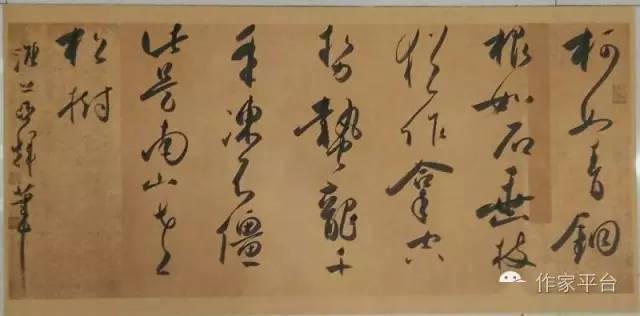 柯如青銅
根如石垂枝
猶作拿空
勢蟄龍千
年凍不僵
此是南山老
松樹
輝筆
作家平台